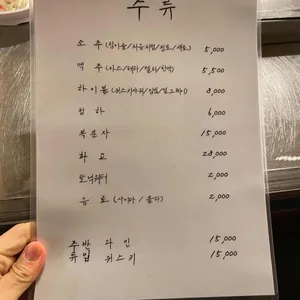 주류
소주 (참이슬/처음처럼/진로/새로) 5,000
맥주 (카스/테라/켈리/한맥) 5,500
하이볼 8,000
청하 6,000
복분자 15,000
화요 28,000
토닉워터 2,000
음료 (사이다/콜라) 2,000
주반 와인 15,000
류입 위스키 15,000